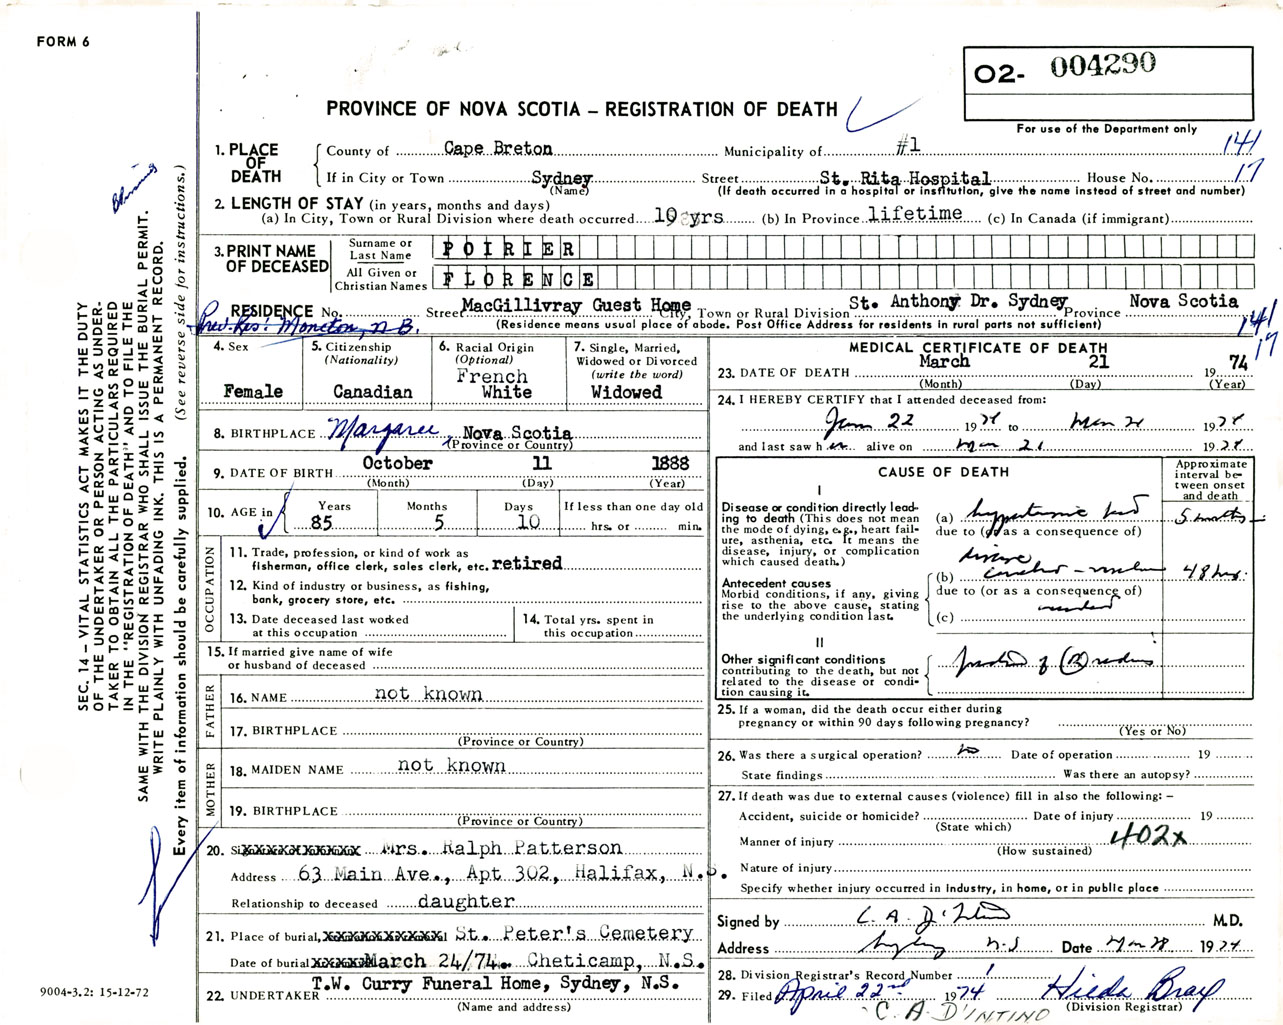 FORM 6
O2- 004290
For use of the Department only
PROVINCE OF NOVA SCOTIA – REGISTRATION OF DEATH
1. PLACE OF DEATH
County of Cape Breton Municipality of #1 141
If in City or Town Sydney Street St. Rita Hospital House No. 17
(Name) (If death occurred in a hospital or institution, give the name instead of street and number)
2. LENGTH OF STAY (in years, months and days)
(a) In City, Town or Rural Division where death occurred 10 yrs (b) In Province lifetime (c) In Canada (if immigrant)
3. PRINT NAME OF DECEASED
Surname or Last Name POIRIER
All Given or Christian Names FLORENCE
RESIDENCE No. Street MacGillivray Guest Home City, Town or Rural Division St. Anthony Dr. Sydney Province Nova Scotia
Prev. Res: Moncton, N.B. (Residence means usual place of abode. Post Office Address for residents in rural parts not sufficient) 141
17
4. Sex
Female
5. Citizenship
(Nationality)
Canadian
6. Racial Origin
(Optional)
French
White
7. Single, Married,
Widowed or Divorced
(write the word)
Widowed
8. BIRTHPLACE Margaree, Nova Scotia
(Province or Country)
9. DATE OF BIRTH October 11 1888
(Month) (Day) (Year)
10. AGE in Years Months Days If less than one day old
85 5 10 hrs. or min.
OCCUPATION
11. Trade, profession, or kind of work as
fisherman, office clerk, sales clerk, etc. retired
12. Kind of industry or business, as fishing,
bank, grocery store, etc.
13. Date deceased last worked
at this occupation
14. Total yrs. spent in
this occupation
15. If married give name of wife
or husband of deceased
FATHER
16. NAME not known
17. BIRTHPLACE
(Province or Country)
MOTHER
18. MAIDEN NAME not known
19. BIRTHPLACE
(Province or Country)
20. Mrs. Ralph Patterson
Address 63 Main Ave., Apt 302, Halifax, N.S.
Relationship to deceased daughter
21. Place of burial, St. Peter's Cemetery
Date of burial March 24/74. Cheticamp, N.S.
22. UNDERTAKER T.W. Curry Funeral Home, Sydney, N.S.
(Name and address)
MEDICAL CERTIFICATE OF DEATH
23. DATE OF DEATH March 21 1974
(Month) (Day) (Year)
24. I HEREBY CERTIFY that I attended deceased from:
Jan 22 1974 to Mar 21 1974
and last saw her alive on Mar 21 1974
CAUSE OF DEATH
Approximate
interval be-
tween onset
and death
I
Disease or condition directly lead-
ing to death (This does not mean
the mode of dying, e.g., heart fail-
ure, asthenia, etc. It means the
disease, injury, or complication
which caused death.)
(a) hypertensive heart 5 months
due to (or as a consequence of)
disease
Antecedent causes
Morbid conditions, if any, giving
rise to the above cause, stating
the underlying condition last.
(b) cerebro-vascular 48 hrs.
due to (or as a consequence of)
accident
(c)
II
Other significant conditions
contributing to the death, but not
related to the disease or condi-
tion causing it.
fracture of (R) radius
25. If a woman, did the death occur either during
pregnancy or within 90 days following pregnancy?
(Yes or No)
26. Was there a surgical operation? no Date of operation 19
State findings Was there an autopsy?
27. If death was due to external causes (violence) fill in also the following: –
Accident, suicide or homicide? Date of injury 19
(State which)
Manner of injury 402x
(How sustained)
Nature of injury
Specify whether injury occurred in industry, in home, or in public place
Signed by C. A. D'Intino M.D.
Address Sydney N.S Date Mar 28 1974
28. Division Registrar's Record Number 1
29. Filed April 22nd 1974 Hilda Bray
(Division Registrar)
C. A D'INTINO
SEC. 14 – VITAL STATISTICS ACT MAKES IT THE DUTY
OF THE UNDERTAKER OR PERSON ACTING AS UNDER-
TAKER TO OBTAIN ALL THE PARTICULARS REQUIRED
IN THE "REGISTRATION OF DEATH" AND TO FILE THE
SAME WITH THE DIVISION REGISTRAR WHO SHALL ISSUE THE BURIAL PERMIT.
WRITE PLAINLY WITH UNFADING INK. THIS IS A PERMANENT RECORD.
Every item of information should be carefully supplied. (See reverse side for instructions.)
9004-3.2: 15-12-72